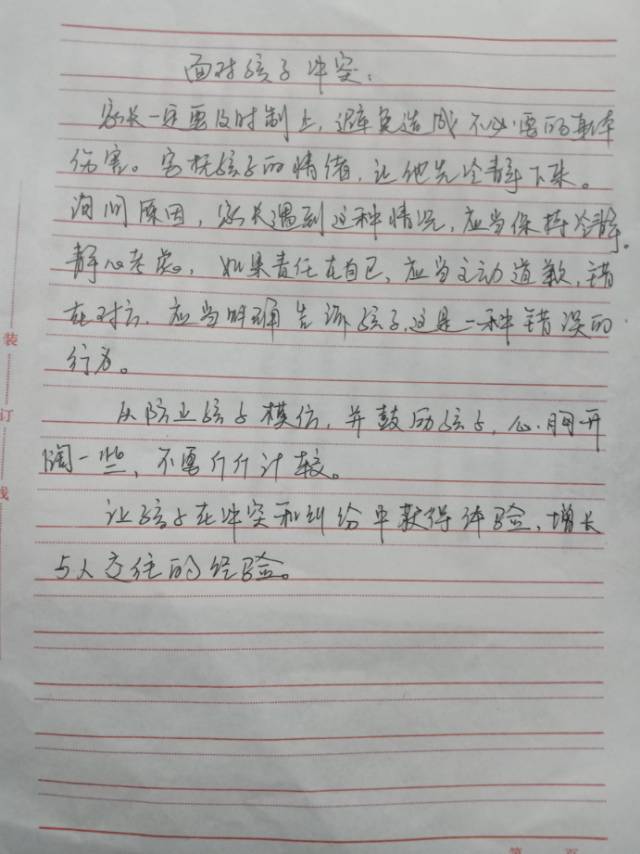 面对孩子冲突：
家长一定要及时制止，避免造成不必要的身体
伤害。安抚孩子的情绪，让他先冷静下来。
询问原因，家长遇到这种情况，应当保持冷静。
静心考虑。如果责任在自己，应当主动道歉，错
在对方，应当明确告诉孩子，这是一种错误的
行为。
以防止孩子模仿，并鼓励孩子，心胸开
阔一些，不要斤斤计较。
让孩子在冲突和纠纷中获得体验，增长
与人交往的经验。
装
订
线
第 页